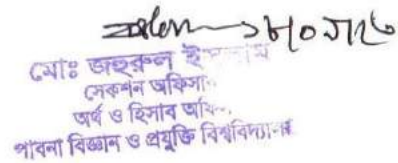 ১৮/০৯/২৩
মোঃ জহুরুল ইসলাম
সেকশন অফিসার
অর্থ ও হিসাব অফিস,
পাবনা বিজ্ঞান ও প্রযুক্তি বিশ্ববিদ্যালয়